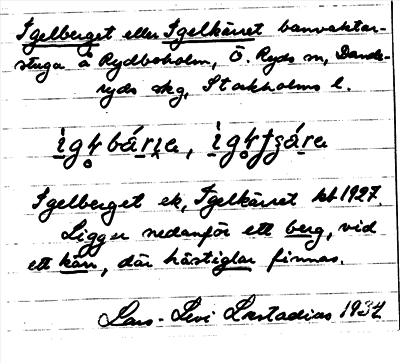 Igelberget eller Igelkärret banvaktar-
stuga å Rydboholm, Ö. Ryds sn, Dande-
ryds skg, Stockholms l.
Igelberget ek, Igelkärret kbl 1927.
Ligger nedanför ett berg, vid
ett kärr, där hästiglar finnas.
Lars-Levi Læstadius 1934